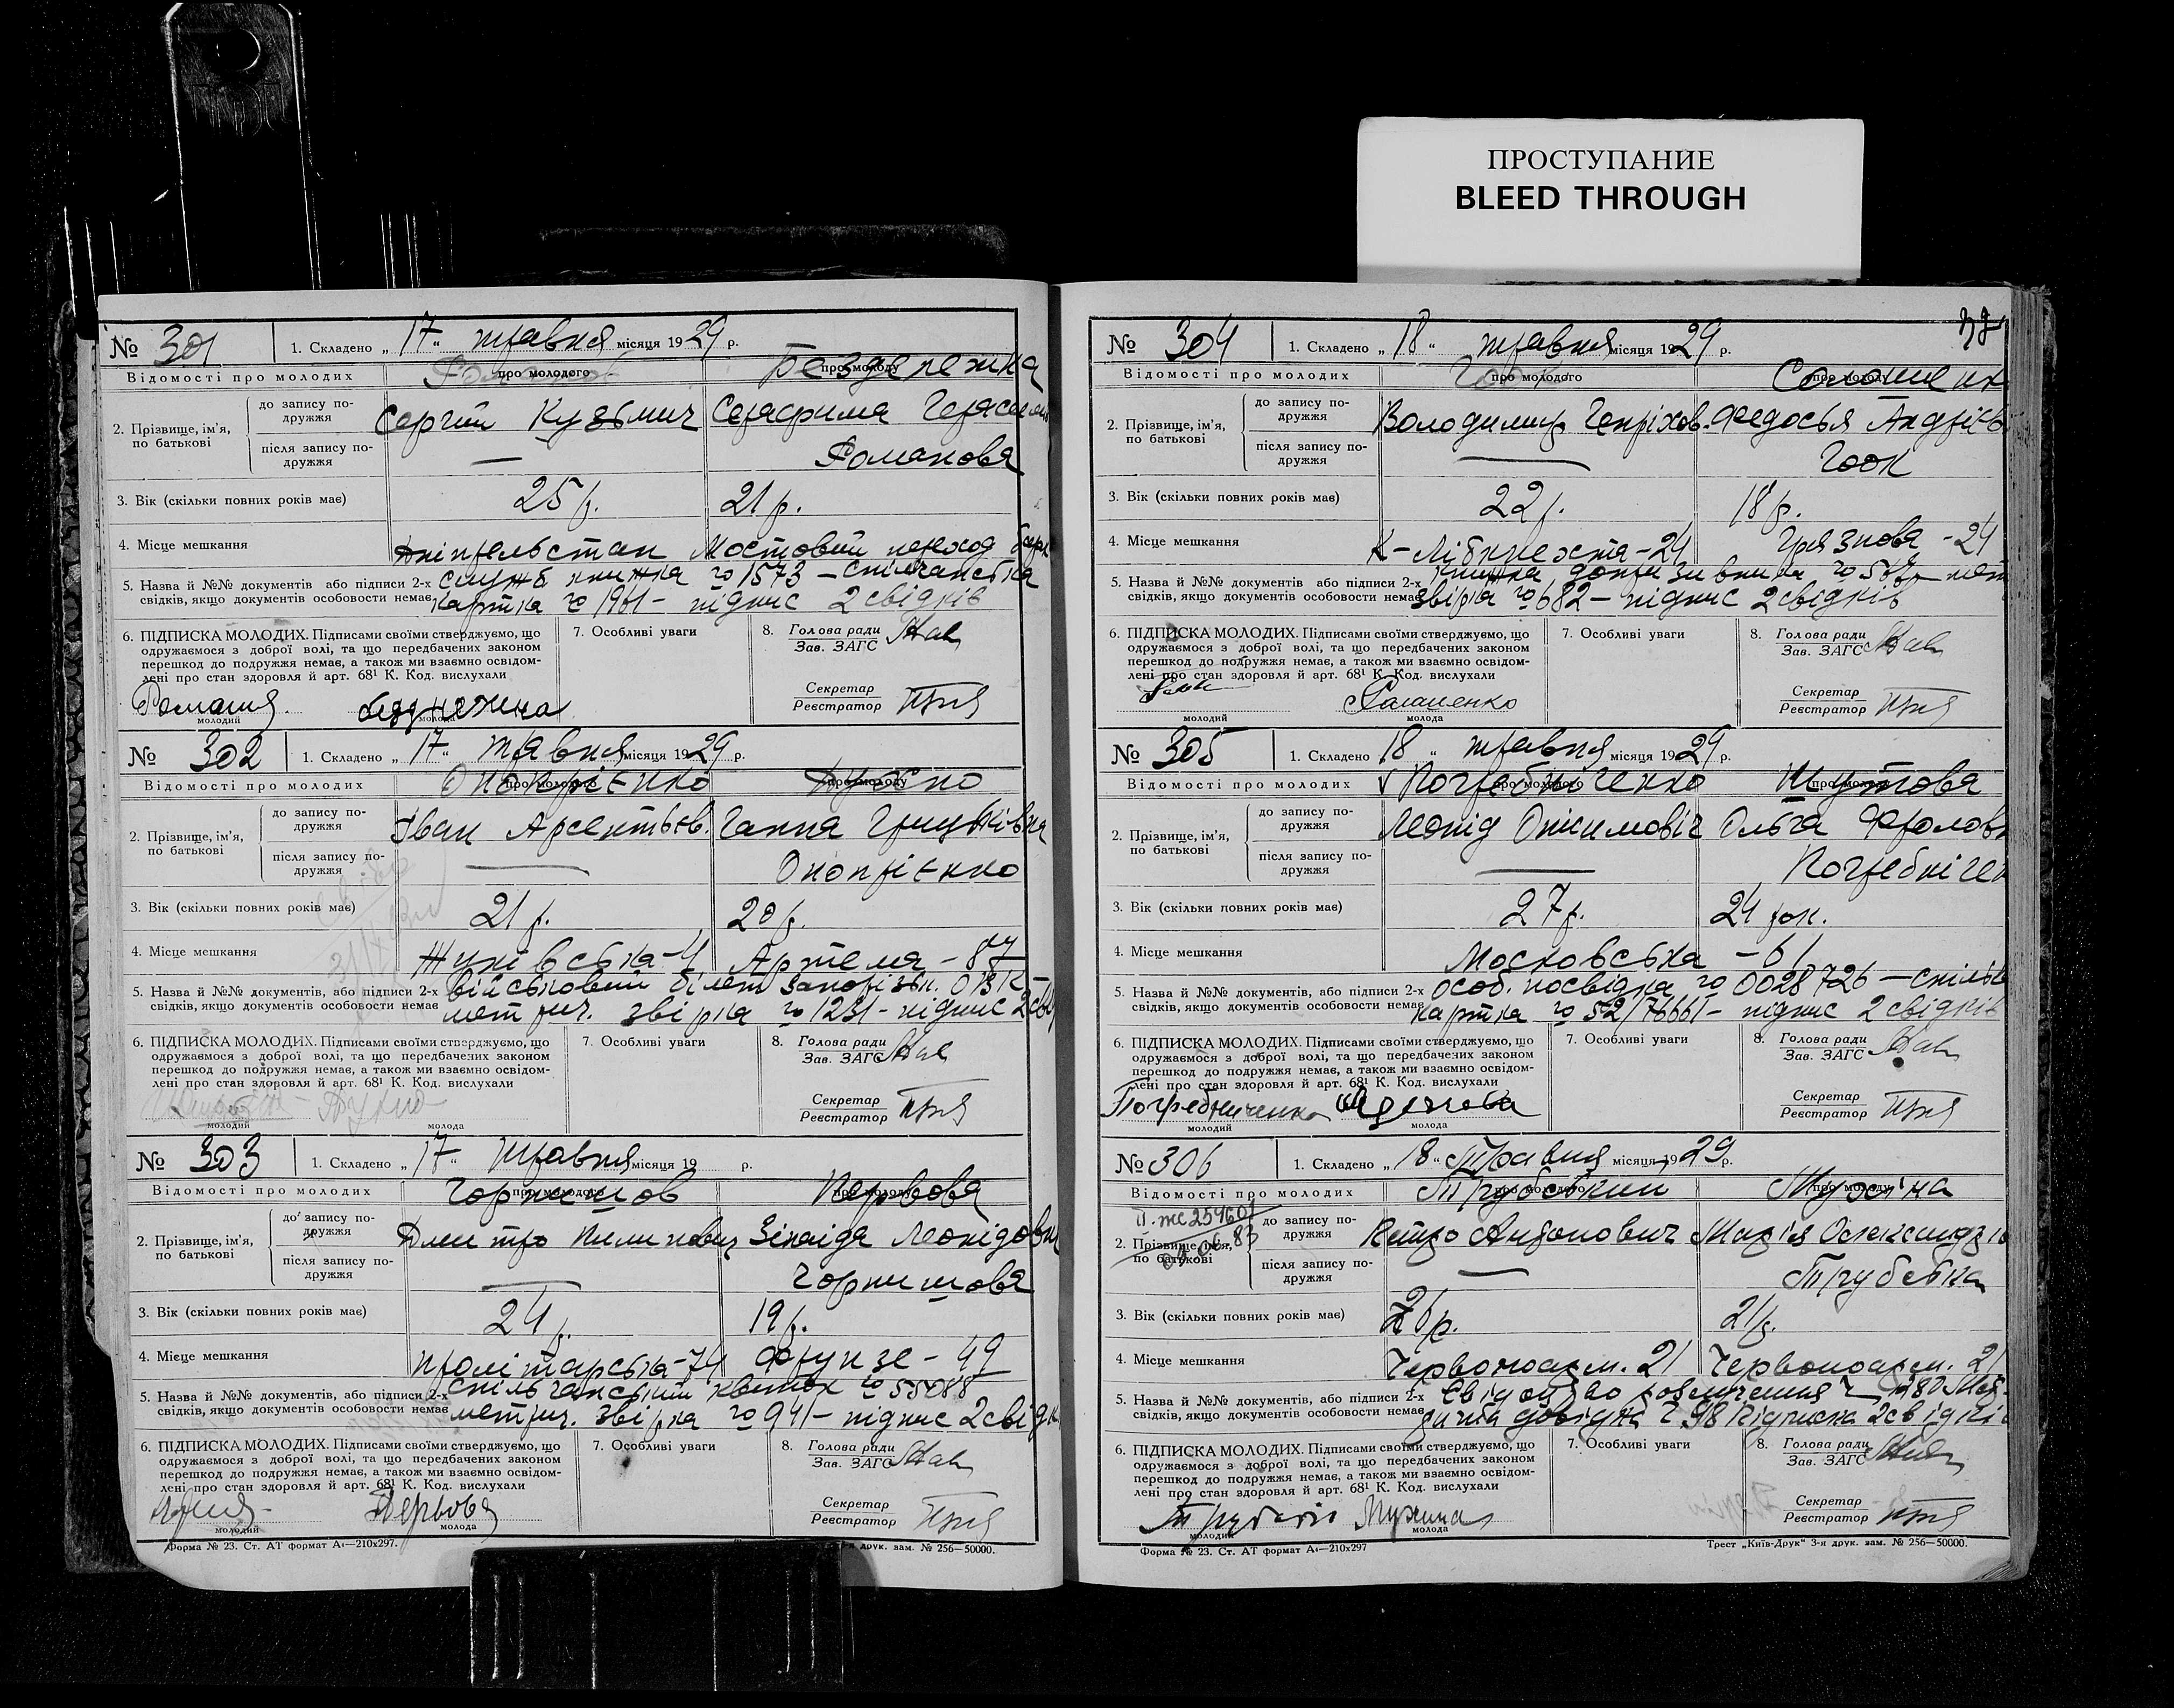 ПРОСТУПАНИЕ
BLEED THROUGH
№ 301 1. Складено „ 17 “ травня місяця 1929 р.
Відомості про молодих про молодого про молоду Бездєнежна
2. Прізвище, ім'я, по батькові
до запису подружжя Сергій Кузьмич Серафима
після запису подружжя — Романова
3. Вік (скільки повних років має) 25 р. 21 р.
4. Місце мешкання Дніпрельстан Мостовий переход
5. Назва й №№ документів або підписи 2-х служб книжка № 1573 — спілчанська
свідків, якщо документів особовости немає картка № 1961 — підпис 2 свідків
6. ПІДПИСКА МОЛОДИХ. Підписами своїми стверджуємо, що
одружаємося з доброї волі, та що передбачених законом
перешкод до подружжя немає, а також ми взаємно освідом-
лені про стан здоровля й арт. 68¹ К. Код. вислухали
молодий молода
7. Особливі уваги
8. Голова ради
Зав. ЗАГС
Секретар
Реєстратор
№ 302 1. Складено „ 17 “ травня місяця 1929 р.
Відомості про молодих про молодого Онопрієнко про молоду
2. Прізвище, ім'я, по батькові
до запису подружжя Іван Арсентьєв. Ганна
після запису подружжя — Онопрієнко
3. Вік (скільки повних років має) 21 р. 20 р.
4. Місце мешкання Артема - 87
5. Назва й №№ документів, або підписи 2-х військовий білет
свідків, якщо документів особовости немає метрич. звірка № 1231 - підпис
6. ПІДПИСКА МОЛОДИХ. Підписами своїми стверджуємо, що
одружаємося з доброї волі, та що передбачених законом
перешкод до подружжя немає, а також ми взаємно освідом-
лені про стан здоровля й арт. 68¹ К. Код. вислухали
молодий молода
7. Особливі уваги
8. Голова ради
Зав. ЗАГС
Секретар
Реєстратор
№ 303 1. Складено „ 17 “ травня місяця 19 р.
Відомості про молодих про молодого Горнишов про молоду Первова
2. Прізвище, ім'я, по батькові
до запису подружжя Дмитро Пилипович Зінаїда Леонідовн
після запису подружжя — Горнишова
3. Вік (скільки повних років має) 24 р. 19 р.
4. Місце мешкання Пролітарська - 74 Фрунзе - 49
5. Назва й №№ документів, або підписи 2-х спільчанський квиток № 55088
свідків, якщо документів особовости немає метрич. звірка № 941 - підпис 2 свідк
6. ПІДПИСКА МОЛОДИХ. Підписами своїми стверджуємо, що
одружаємося з доброї волі, та що передбачених законом
перешкод до подружжя немає, а також ми взаємно освідом-
лені про стан здоровля й арт. 68¹ К. Код. вислухали
молодий Первова молода
7. Особливі уваги
8. Голова ради
Зав. ЗАГС
Секретар
Реєстратор
Форма № 23. Ст. АТ формат А₄—210х297.
друк. зам. № 256—50000.
№ 304 1. Складено „ 18 “ травня місяця 1929 р.
Відомості про молодих про молодого Гоок про молоду
2. Прізвище, ім'я, по батькові
до запису подружжя Володимир Генріхов. Федосья Андрієв
після запису подружжя — Гоок
3. Вік (скільки повних років має) 22 р. 18 р.
4. Місце мешкання К-Лібкнехта - 24 Грязнова - 24
5. Назва й №№ документів або підписи 2-х книжка
свідків, якщо документів особовости немає звірка № 682 — підпис 2 свідків
6. ПІДПИСКА МОЛОДИХ. Підписами своїми стверджуємо, що
одружаємося з доброї волі, та що передбачених законом
перешкод до подружжя немає, а також ми взаємно освідом-
лені про стан здоровля й арт. 68¹ К. Код. вислухали
молодий молода
7. Особливі уваги
8. Голова ради
Зав. ЗАГС
Секретар
Реєстратор
№ 305 1. Складено „ 18 “ травня місяця 1929 р.
Відомості про молодих про молодого Погребніченко про молоду Шутова
2. Прізвище, ім'я, по батькові
до запису подружжя Леонід Онисимовіч Ольга Фроловн
після запису подружжя — Погребнічен
3. Вік (скільки повних років має) 27 р. 24 рок.
4. Місце мешкання Московська - 61
5. Назва й №№ документів, або підписи 2-х особ. посвідка № 0028726 — спільч
свідків, якщо документів особовости немає картка № 52/76661 — підпис 2 свідків
6. ПІДПИСКА МОЛОДИХ. Підписами своїми стверджуємо, що
одружаємося з доброї волі, та що передбачених законом
перешкод до подружжя немає, а також ми взаємно освідом-
лені про стан здоровля й арт. 68¹ К. Код. вислухали
Погребниченко молодий молода
7. Особливі уваги
8. Голова ради
Зав. ЗАГС
Секретар
Реєстратор
№ 306 1. Складено „ 18 “ Травня місяця 1929 р.
Відомості про молодих про молодого Трубський про молоду Мухіна
2. Прізвище, ім'я, по батькові
до запису подружжя Петро Антонович Марія Олександрів
після запису подружжя — Трубська
3. Вік (скільки повних років має) 26 р. 21 р.
4. Місце мешкання Червоноарм. 21 Червоноарм. 21
5. Назва й №№ документів, або підписи 2-х
свідків, якщо документів особовости немає довідка № 98 Підписка 2 свідків
6. ПІДПИСКА МОЛОДИХ. Підписами своїми стверджуємо, що
одружаємося з доброї волі, та що передбачених законом
перешкод до подружжя немає, а також ми взаємно освідом-
лені про стан здоровля й арт. 68¹ К. Код. вислухали
молодий Мухина молода
7. Особливі уваги
8. Голова ради
Зав. ЗАГС
Секретар
Реєстратор
Форма № 23. Ст. АТ формат А₄—210х297
Трест „Київ-Друк“ 3-я друк. зам. № 256—50000.